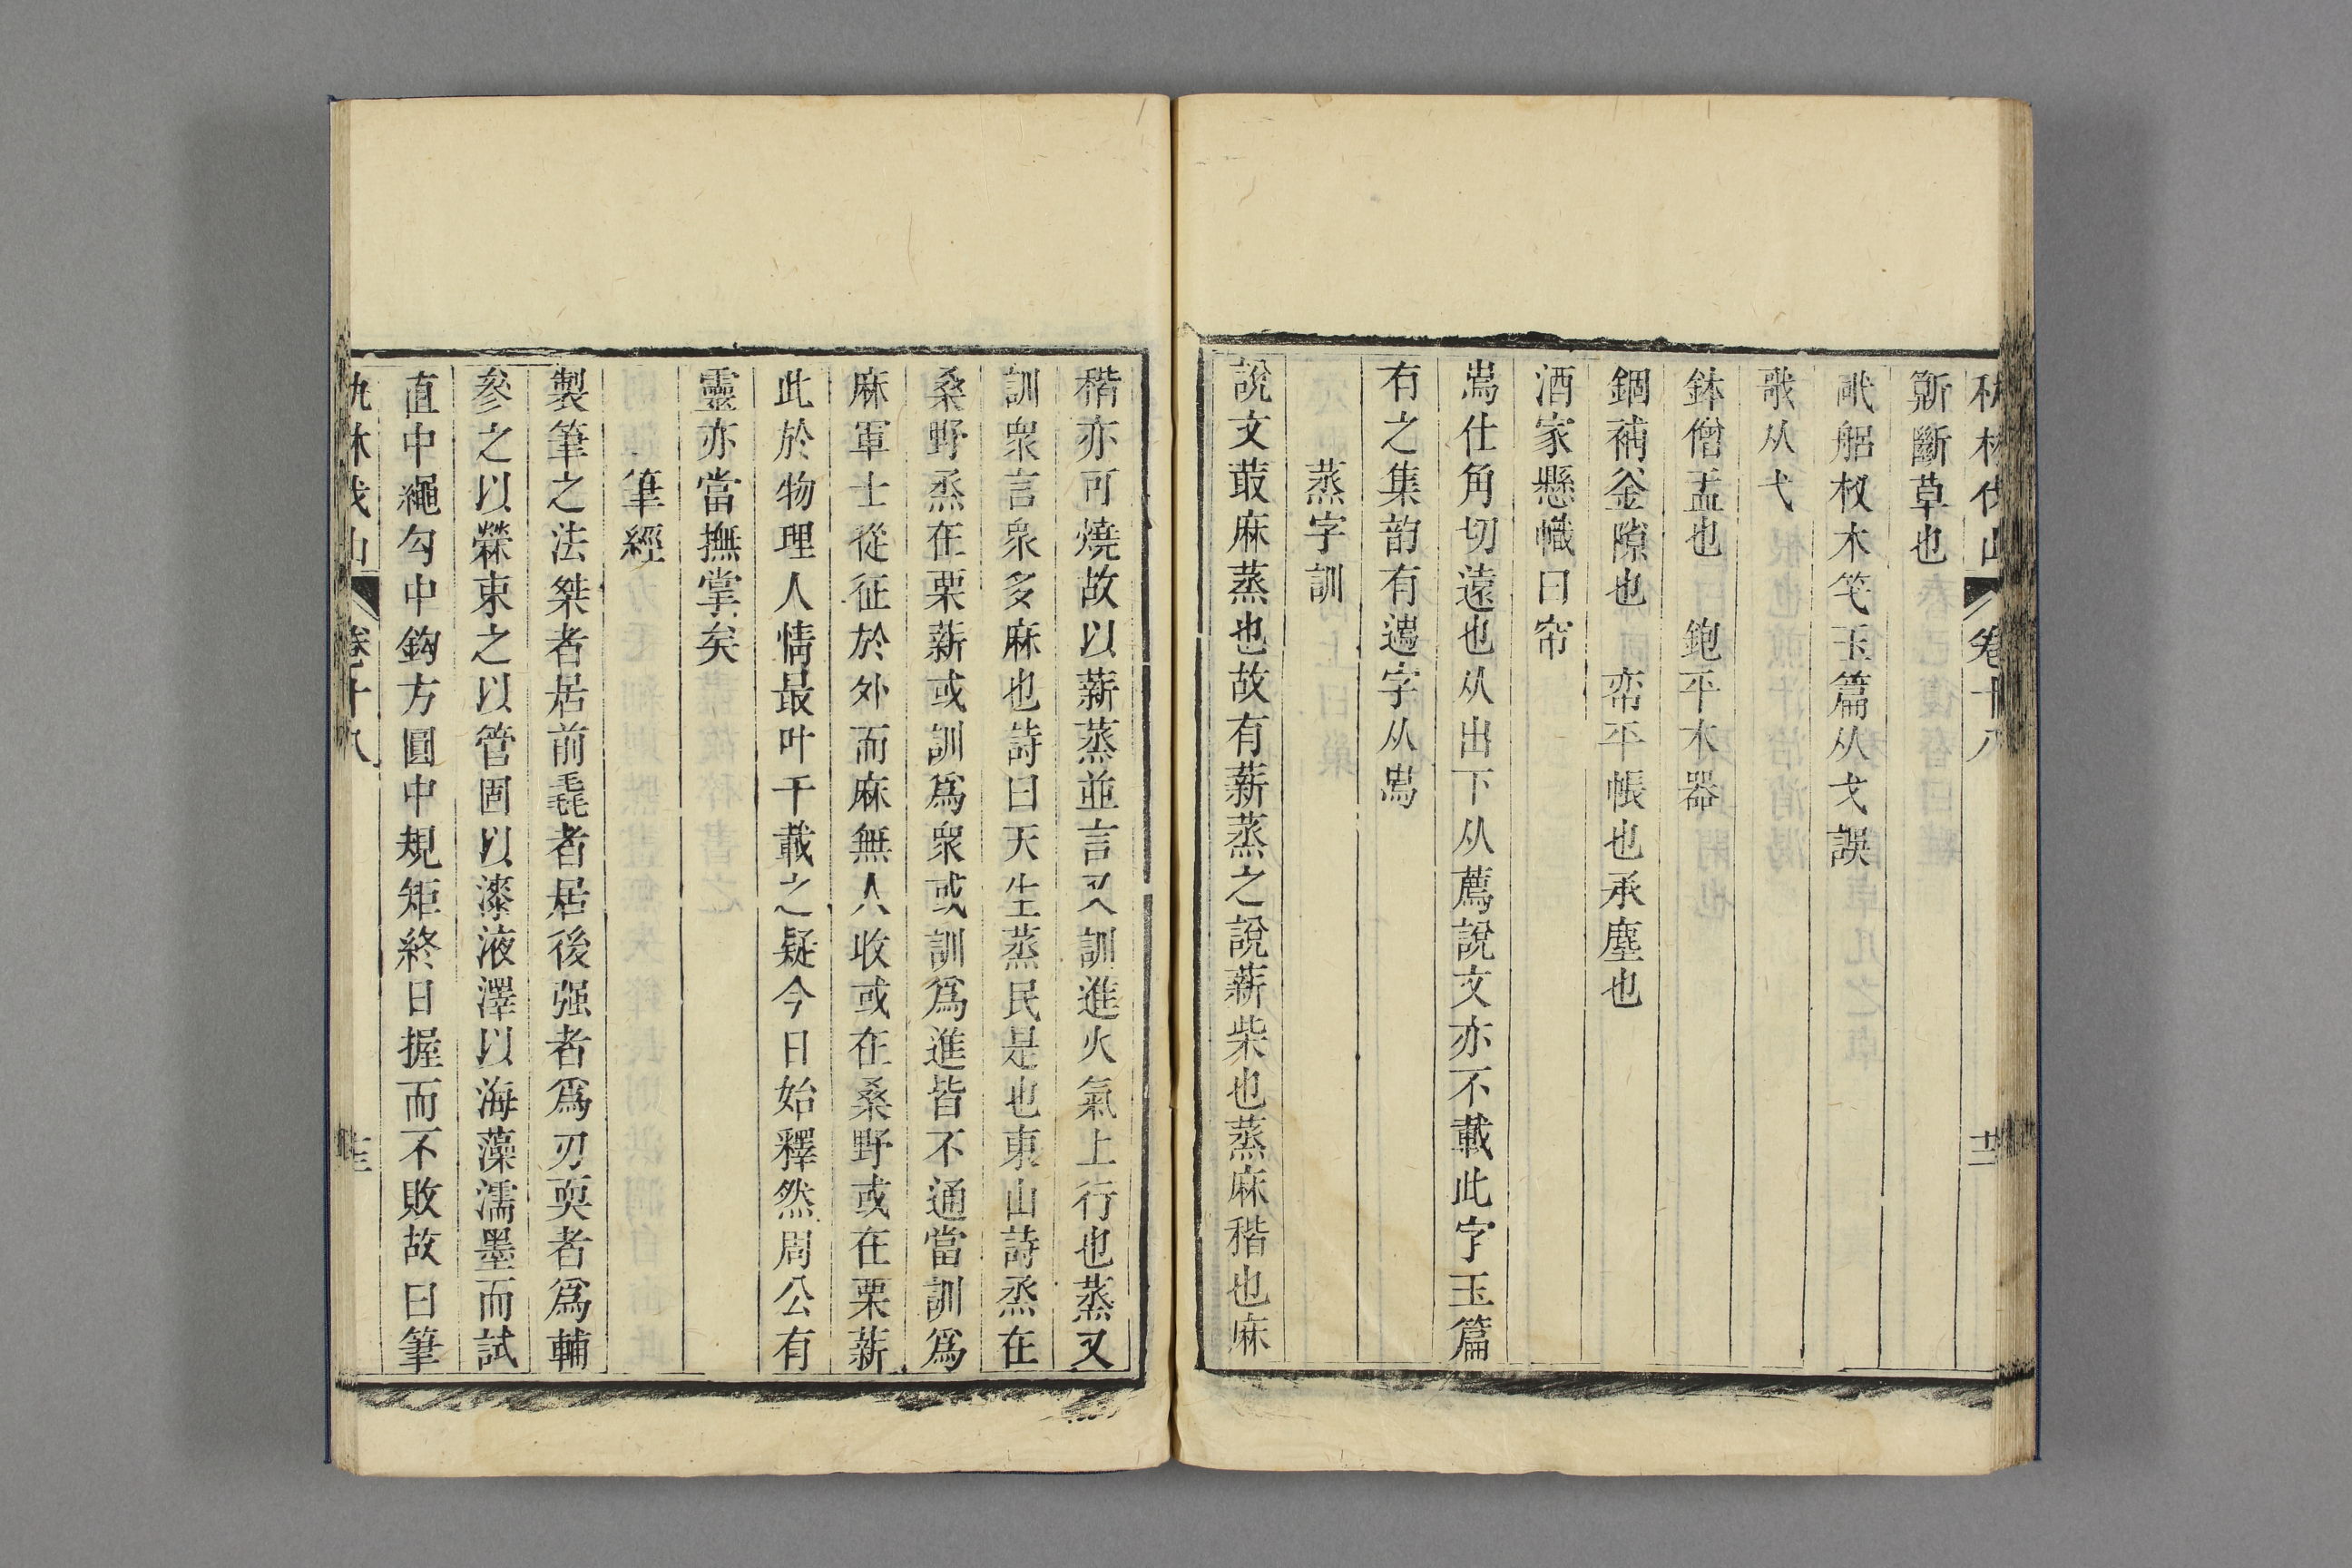 卷十八
斲斷草也
歌从弋
鉢僧盂也　鉋平木器
錮補釜隙也　帟平帳也承塵也
酒家懸幟曰帘
仕角切遠也从出下从薦說文亦不載此字玉篇
有之集韵有字从
蒸字訓
說文菆麻蒸也故有薪蒸之說薪柴也蒸麻稭也麻
稭亦可燒故以薪蒸並言又訓進火氣上行也蒸又
訓衆言衆多麻也詩曰天生蒸民是也東山詩烝在
桑野烝在栗薪或訓爲衆或訓爲進皆不通當訓爲
麻軍士從征於外而麻無人收或在桑野或在栗薪
此於物理人情最叶千載之疑今日始釋然周公有
靈亦當撫掌矣
筆經
製筆之法桀者居前毳者居後强者爲刃耎者爲輔
參之以檾束之以管固以漆液澤以海藻濡墨而試
直中繩勾中鈎方圓中規矩終日握而不敗故曰筆
卷十八